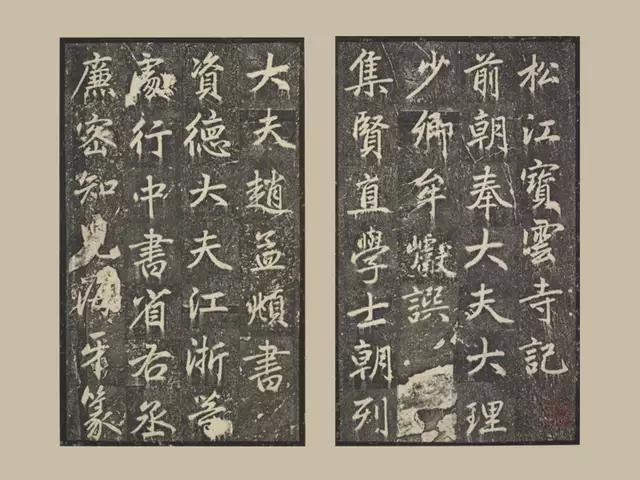 松江寶雲寺記
前朝奉大夫大理
少卿牟巘譔
集賢直學士朝列
大夫趙孟頫書
資德大夫江浙等
處行中書省右丞
廉密知兒海牙篆